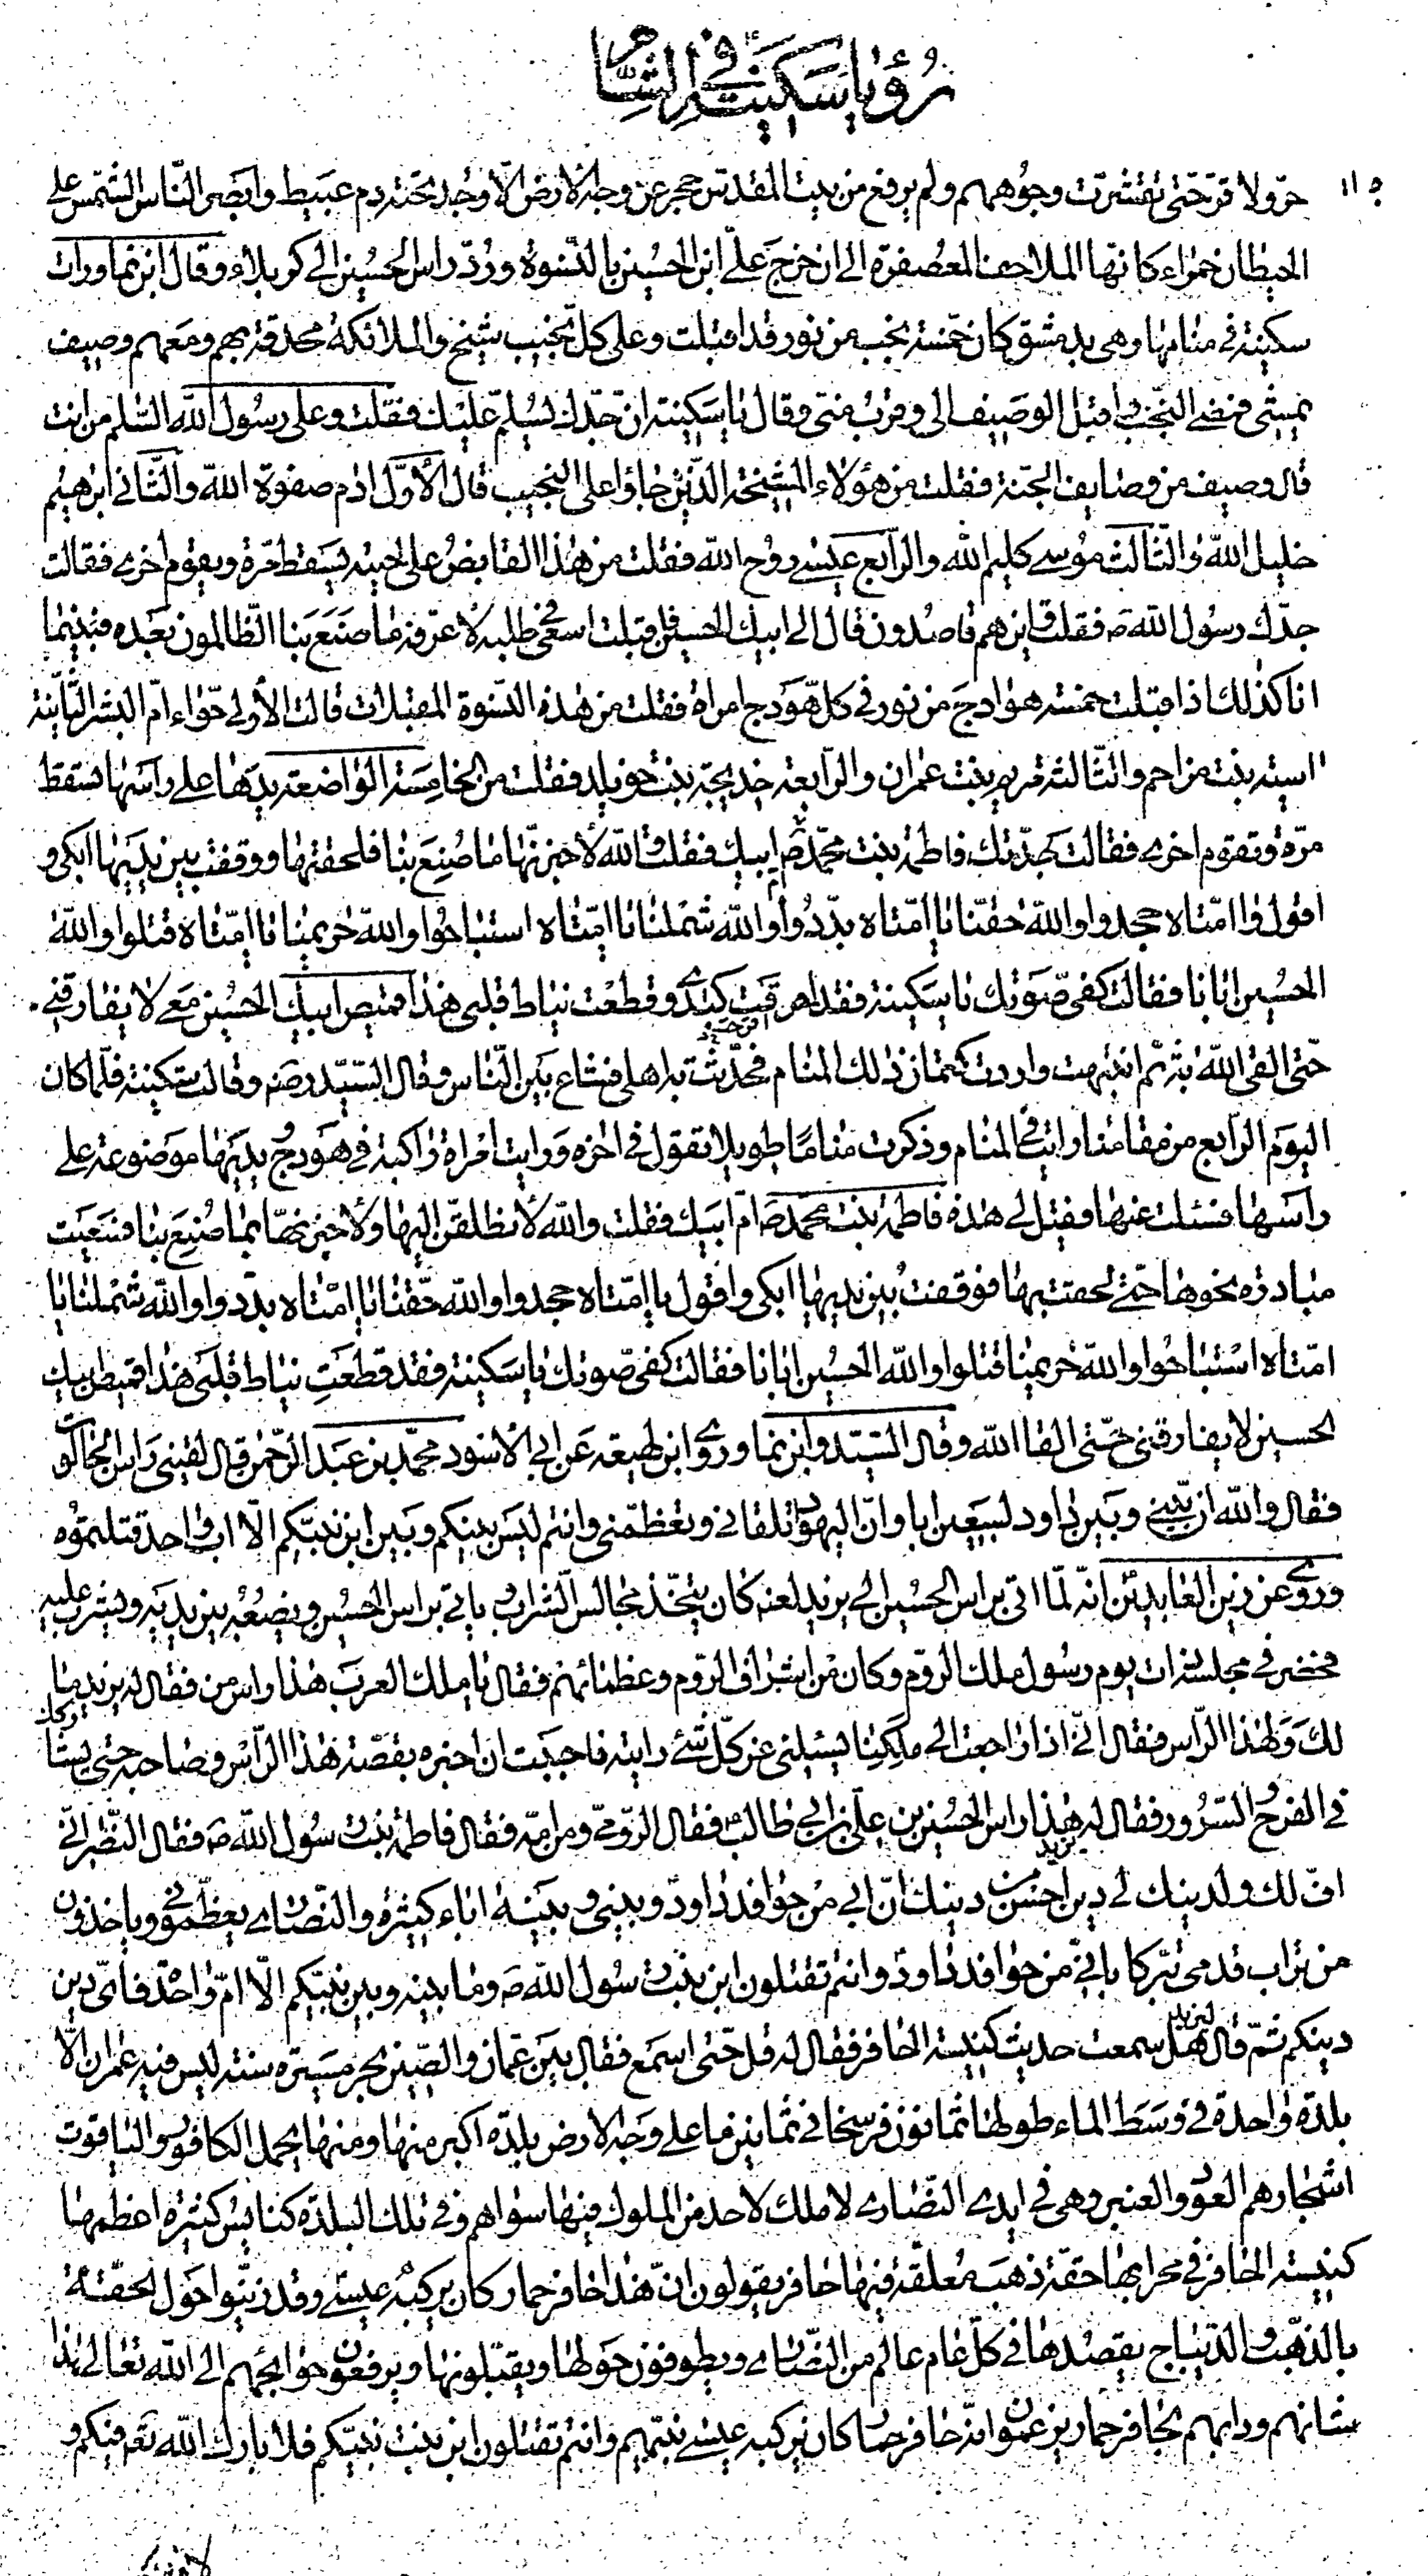 رؤيا سكينة في الشام
حرّ ولا قرّ حتّى تقشّرت وجوههم ولم يرفع من بيت المقدّس حجر عن وجه الارض الّا وجد تحته دم عبيط وابصر النّاس الشّمس على
الحيطان حمراء كانّها الملاحف المعصفرة الى ان خرج علىّ ابن الحسين بالنّسوة وردّ راس الحسين الى كربلاء وقال ابن نما ورات
سكينة في منامها وهى بدمشق كان خمسة نجب من نور قد اقبلت وعلى كلّ نجيب شيخ والملائكة محدقة بهم ومعهم وصيف
يمشى فمضى النّجب واقبل الوصيف الى وقرب منّى وقال يا سكينة انّ جدّك ليسلّم عليك فقلت وعلى رسول الله السّلم من انت
قال وصيف من وصايف الجنّة فقلت من هؤلاء المشيخة الّذين جاؤا على النّجيب قال الاوّل ادم صفوة الله والثّانى ابرهيم
خليل الله والثّالث موسى كليم الله والرّابع عيسى روح الله فقلت من هذا القابض على لحيته يسقط مرّة ويقوم اخرى فقالت
جدّك رسول الله ص فقلت واين هم قاصدون قال الى ابيك الحسين فاقبلت اسعى فى طلبه لاعرّفه ما صنع بنا الظّالمون بعده فبينما
انا كذلك اذ اقبلت خمسة هوادج من نور فى كلّ هودج امراة فقلت من هذه النّسوة المقبلات قالت الاولى حوّاء امّ البشر الثّانية
اسية بنت مزاحم والثّالثة مريم بنت عمران والرّابعة خديجة بنت خويلد فقلت من الخامسة الواضعة يدها على راسها تسقط
مرّة وتقوم اخرى فقالت جدّتك فاطمة بنت محمّد ص امّ ابيك فقلت والله لاخبرنّها ما صنع بنا فلحقتها ووقفت بين يديها ابكى و
اقول وا امّتاه جحدوا والله حقّنا يا امّتاه بدّدوا والله شملنا يا امّتاه استباحوا والله حريمنا يا امّتاه قتلوا والله
الحسين ابانا فقالت كفى صوتك يا سكينة فقد احرقت كبدى وقطعت نياط قلبى هذا قميص ابيك الحسين معى لا يفارقنى
حتّى القى الله به ثمّ انتبهت واردت كتمان ذلك المنام فحدّثت به اهلى فشاع بين النّاس وقال السّيّد رض وقالت سكينة فلمّا كان
اليوم الرّابع من مقامنا رايت فى المنام وذكرت مناما طويلا تقول فى اخره ورايت امراة راكبة فى هودج ويديها موضوعة على
راسها فسئلت عنها فقيل لى هذه فاطمة بنت محمّد ص امّ ابيك فقلت والله لانطلقنّ اليها ولاخبرنّها بما صنع بنا فسعيت
مبادرة نحوها حتّى لحقت بها فوقفت بين يديها ابكى واقول يا امّتاه جحدوا والله حقّنا يا امّتاه بدّدوا والله شملنا يا
امّتاه استباحوا والله حريمنا قتلوا والله الحسين ابانا فقالت كفى صوتك يا سكينة فقد قطّعت نياط قلبى هذا قميص ابيك
الحسين لا يفارقنى حتّى القا الله وقال السّيّد وابن نما وروى ابن لهيعة عن ابى الاسود محمّد بن عبد الرّحمن قال لقينى راس الجالوت
فقال والله ان بينى وبين داود لسبعين ابا وانّ اليهود تلقانى وتعظّمنى وانتم ليس بينكم وبين ابن نبيّكم الّا اب واحد قتلتموه
وروى عن زين العابدين انّه لمّا اتى براس الحسين الى يزيد لعنه كان يتّخذ مجالس الشّراب وياتى براس الحسين ويضعه بين يديه ويشرب عليه
فحضر فى مجلسه ذات يوم رسول ملك الرّوم وكان من اشراف الرّوم وعظمائهم فقال يا ملك العرب هذا راس من فقال له يزيد ما
لك ولهذا الرّاس فقال انّى اذا راجعت الى ملكنا يسئلنى عن كلّ شئ رايته فاحببت ان اخبره بقصّة هذا الرّاس وصاحبه حتّى يشاركك
فى الفرح والسّرور فقال له يزيد هذا راس الحسين بن علىّ بن ابى طالب فقال الرّومى ومن امّه فقال فاطمة بنت رسول الله ص فقال النّصرانى
افّ لك ولدينك لى دين احسن من دينك انّ ابى من حوافد داود وبينى وبينه اباء كثيرة والنّصارى يعظّمونى وياخذون
من تراب قدمى تبرّكا بابى من حوافد داود وانتم تقتلون ابن بنت رسول الله ص وما بينه وبين نبيّكم الّا امّ واحدة فاىّ دين
دينكم ثمّ قال ليزيد هل سمعت حديث كنيسة الحافر فقال له قل حتّى اسمع فقال بين عمان والصّين بحر مسيرة سنة ليس فيه عمران الّا
بلدة واحدة فى وسط الماء طولها ثمانون فرسخا فى ثمانين ما على وجه الارض بلدة اكبر منها ومنها يحمل الكافور والياقوت
اشجارهم العود والعنبر وهى فى ايدى النّصارى لا ملك لاحد من الملوك فيها سواهم وفى تلك البلدة كنايس كثيرة اعظمها
كنيسة الحافر فى محرابها حقّة ذهب معلّقة فيها حافر يقولون انّ هذا حافر حمار كان يركبه عيسى وقد زيّنوا حول الحقّة
بالذّهب والدّيباج يقصدها فى كلّ عام عالم من النّصارى ويطوفون حولها ويقبّلونها ويرفعون حوائجهم الى الله تعالى هذا
شانهم ودابهم بحافر حمار يزعمون انّه حافر حمار كان يركبه عيسى نبيّهم وانتم تقتلون ابن بنت نبيّكم فلا بارك الله تع فيكم و